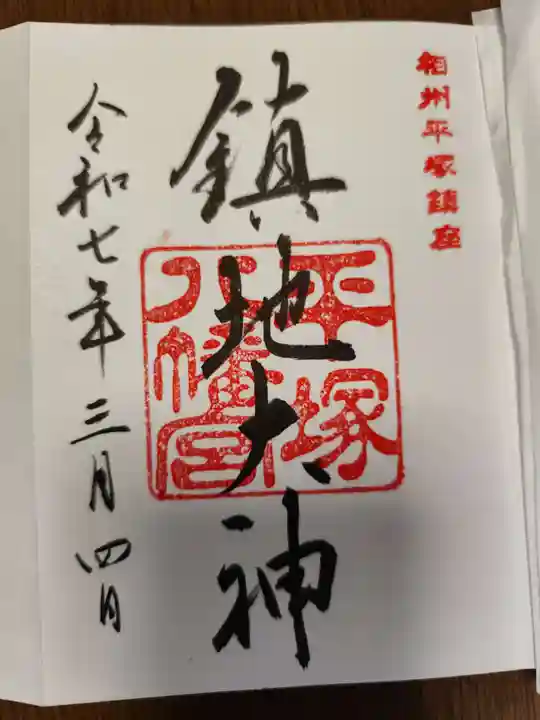 相州平塚鎮座
鎮地大神
平塚
八幡宮
令和七年三月四日